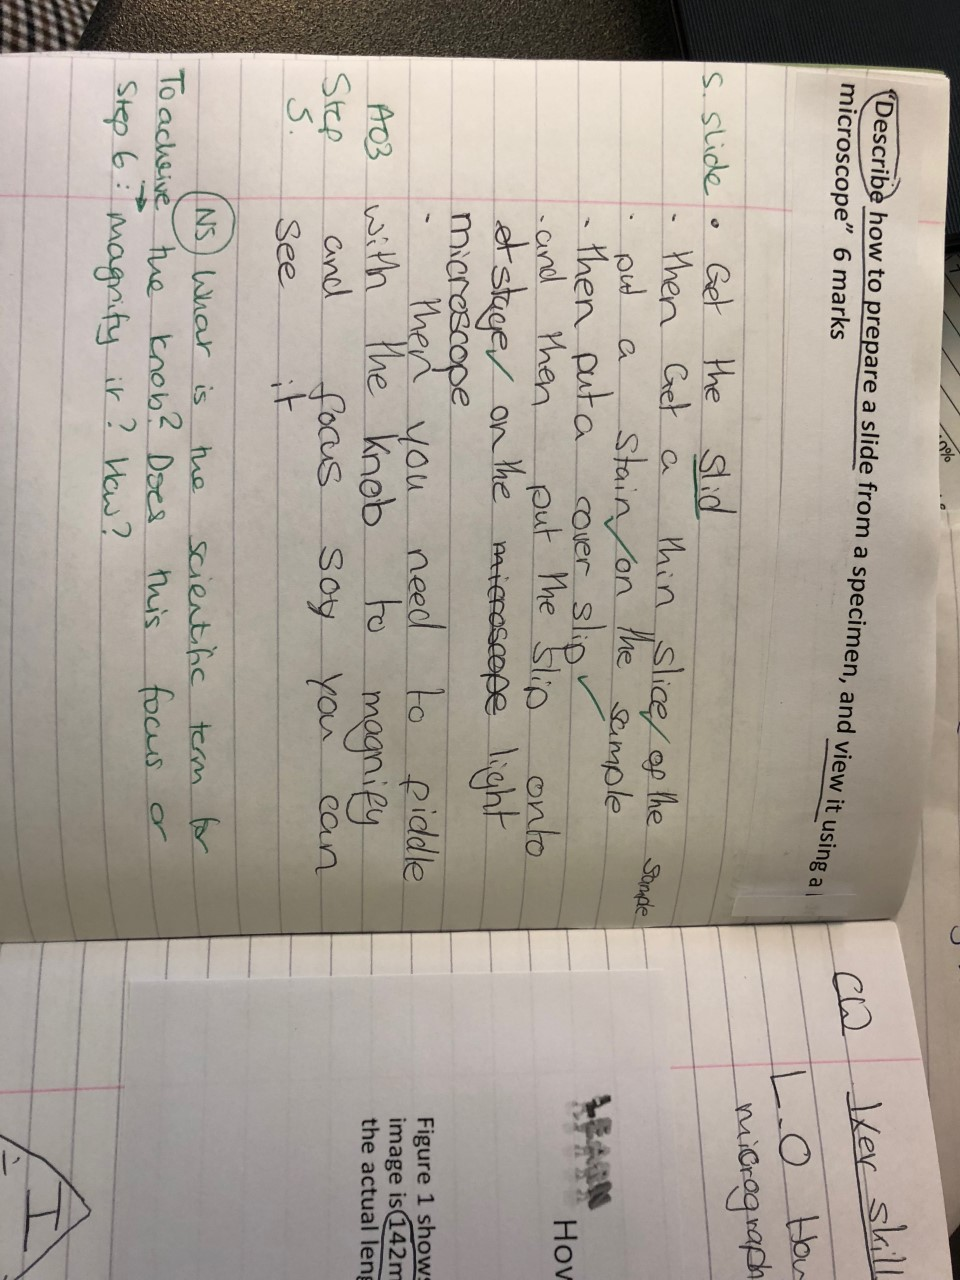 "Describe how to prepare a slide from a specimen, and view it using a
microscope" 6 marks
s. slide • Get the slid
• then Get a thin slice of the sample
• put a stain on the sample
• then put a cover slip
• and then put the slip onto
stage on the microscope light
microscope
• then you need to fiddle
AO3 with the knob to magnify
Step and focus soy you can
5. see it
NS What is the scientific term for
the knob? Does this focus or
magnify it? How?
To acheive
Step 6:
CW
L.O How
micrograph
LEARN
Figure 1 shows
image is 142m
the actual leng
I